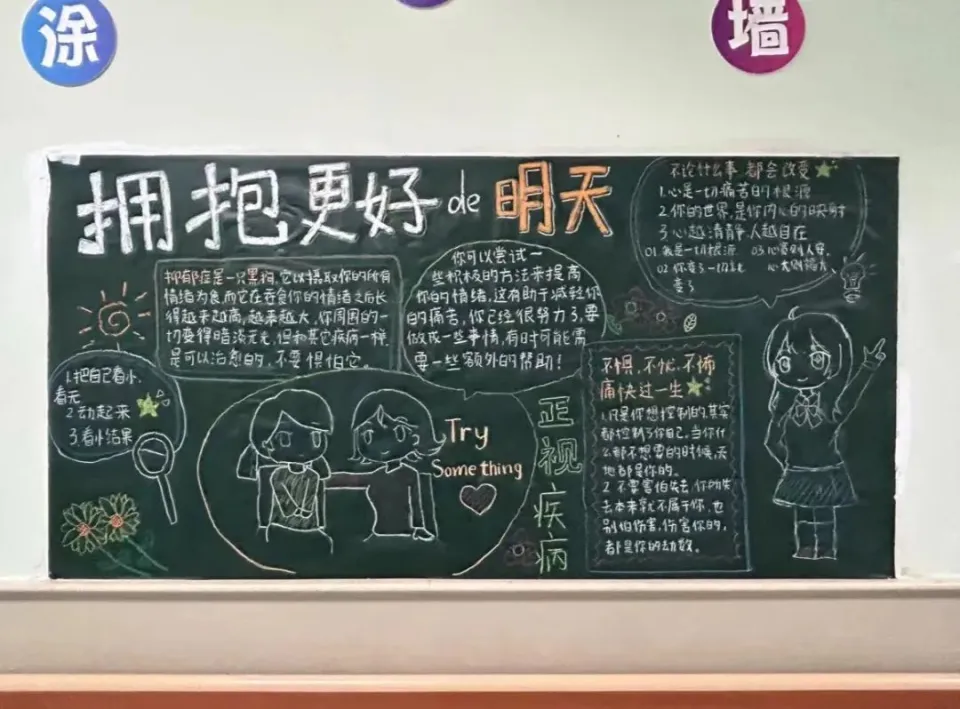 涂
墙
拥抱更好de明天
抑郁症是一只黑狗,它以摄取你的所有
情绪为食,而它在吞食你的情绪之后长
得越来越高,越来越大,你周围的一
切变得暗淡无光,但和其它疾病一样,
是可以治愈的,不要惧怕它。
你可以尝试一
些积极的方法来提高
你的情绪,这有助于减轻你
的痛苦,你已经很努力了,要
做成一些事情,有时可能需
要一些额外的帮助!
不论什么事 都会改变
1.心是一切痛苦的根源
2.你的世界,是你内心的映射
3.心越清静,人越自在
01.我是一切根源
02.你变了一切就
变了
1.把自己看小,
看无
2.动起来
3.看小结果
Try
Something
正视疾病
不惧,不忧,不怖
痛快过一生
1.只是你想控制的,其实
都控制了你自己,当你什
么都不想要的时候,天
地都是你的。
2.不要害怕失去,你所失
去本来就不属于你,也
别怕伤害,伤害你的,
都是你的劫数。